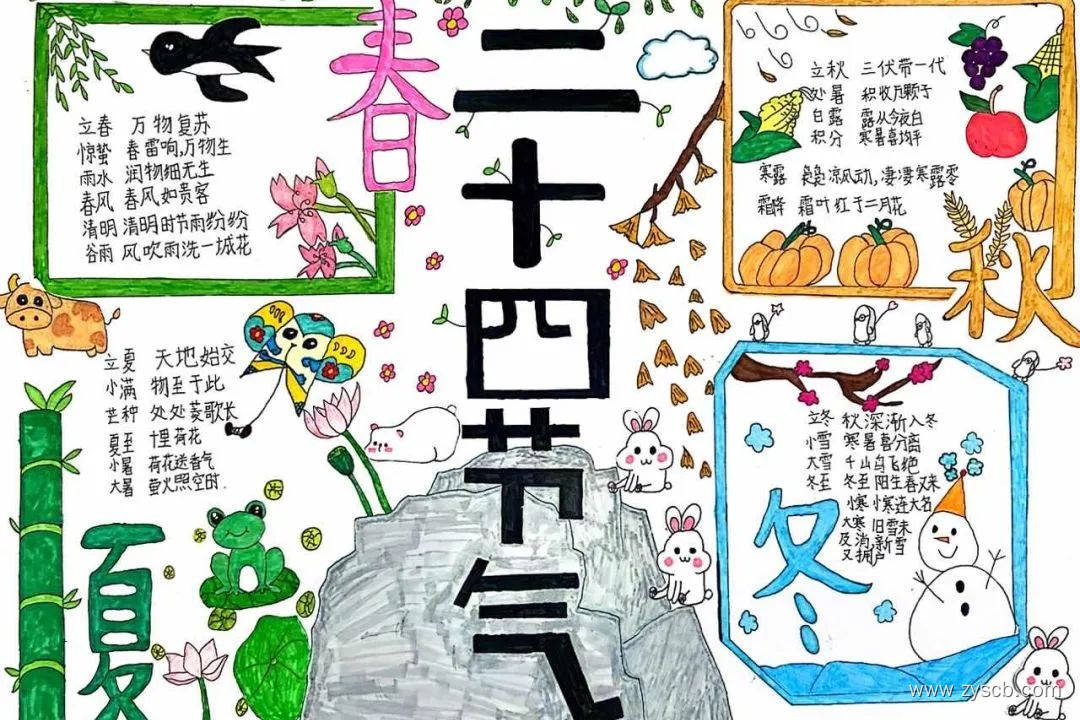 二十四节气
春
立春 万物复苏
惊蛰 春雷响,万物生
雨水 润物细无生
春风 春风如贵客
清明 清明时节雨纷纷
谷雨 风吹雨洗一城花
立夏 天地始交
小满 物至于此
芒种 处处菱歌长
夏至 十里荷花
小暑 荷花送香气
大暑 萤火照空时.
夏
立秋 三伏带一代
处暑 积收万颗子
白露 露从今夜白
积分 寒暑喜均平
寒露 袅袅凉风动,凄凄寒露零
霜降 霜叶红于二月花
秋
立冬 秋深渐入冬
小雪 寒暑喜分离
大雪 千山鸟飞绝
冬至 冬至阳生春又来
小寒 小寒连大名
大寒 旧雪未
及消,新雪
又拥户
冬
www.zyscb.com